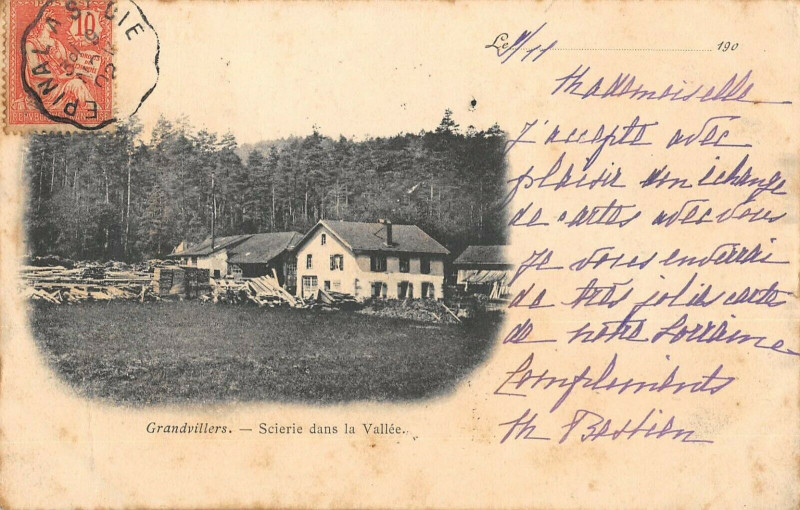 10
EPINAL A ST DIE
02
Le 9/11 190
Mademoiselle
J'accepte avec
plaisir un échange
de cartes avec vous
Je vous enverrai
de très jolies carte
de notre Lorraine
Compliments
M Bastien
Grandvillers. — Scierie dans la Vallée.